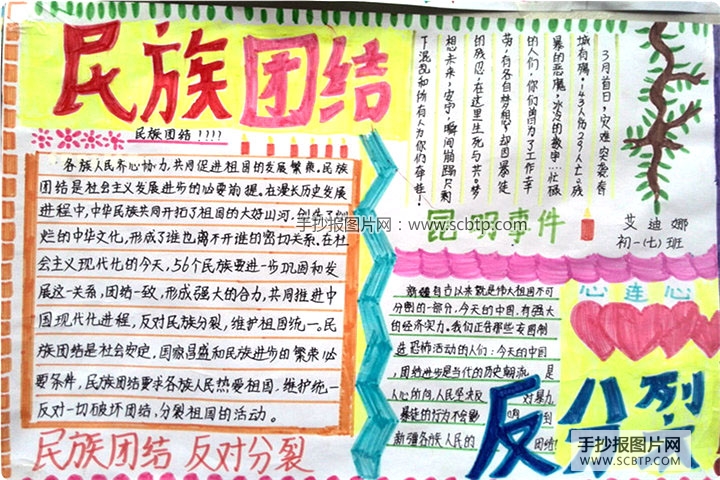 民族团结
民族团结!!!!
各族人民齐心协力,共同促进祖国的发展繁荣。民族
团结是社会主义发展进步的必要前提。在漫长历史发展
进程中,中华民族共同开拓了祖国的大好山河,创造了灿
烂的中华文化,形成了谁也离不开谁的密切关系。在社
会主义现代化的今天,56个民族要进一步巩固和发
展这一关系,团结一致,形成强大的合力,共同推进中
国现代化进程,反对民族分裂,维护祖国统一。民
族团结是社会安定,国家昌盛和民族进步的繁荣必
要条件,民族团结要求各族人民热爱祖国,维护统一
反对一切破坏团结,分裂祖国的活动。
民族团结 反对分裂
3月首日,灾难突袭春
城有殇。143人伤29人亡。残
暴的恶魔,冰冷的数字……忙碌
的人们,你们曾为了工作辛
劳,有各自梦想,却因暴徒
的残忍,在这里生死与共。梦
想未来,安宁,瞬间崩塌,只剩
下混乱和
昆明事件
艾迪娜
初一(七)班
手抄报图片网:www.scbtp.com
新疆自古以来就是伟大祖国不可
分割的一部分,今天的中国,有强大
的经济实力。我们正告那些妄图制
造恐怖活动的人们:今天的中国
,团结进步是当代的历史潮流 是
人心所向,人民坚决反 对暴力
暴徒的行为不会影响 到
新疆各族人民的 团结!
心连心
反分裂
手抄报图片网
WWW.SCBTP.COM